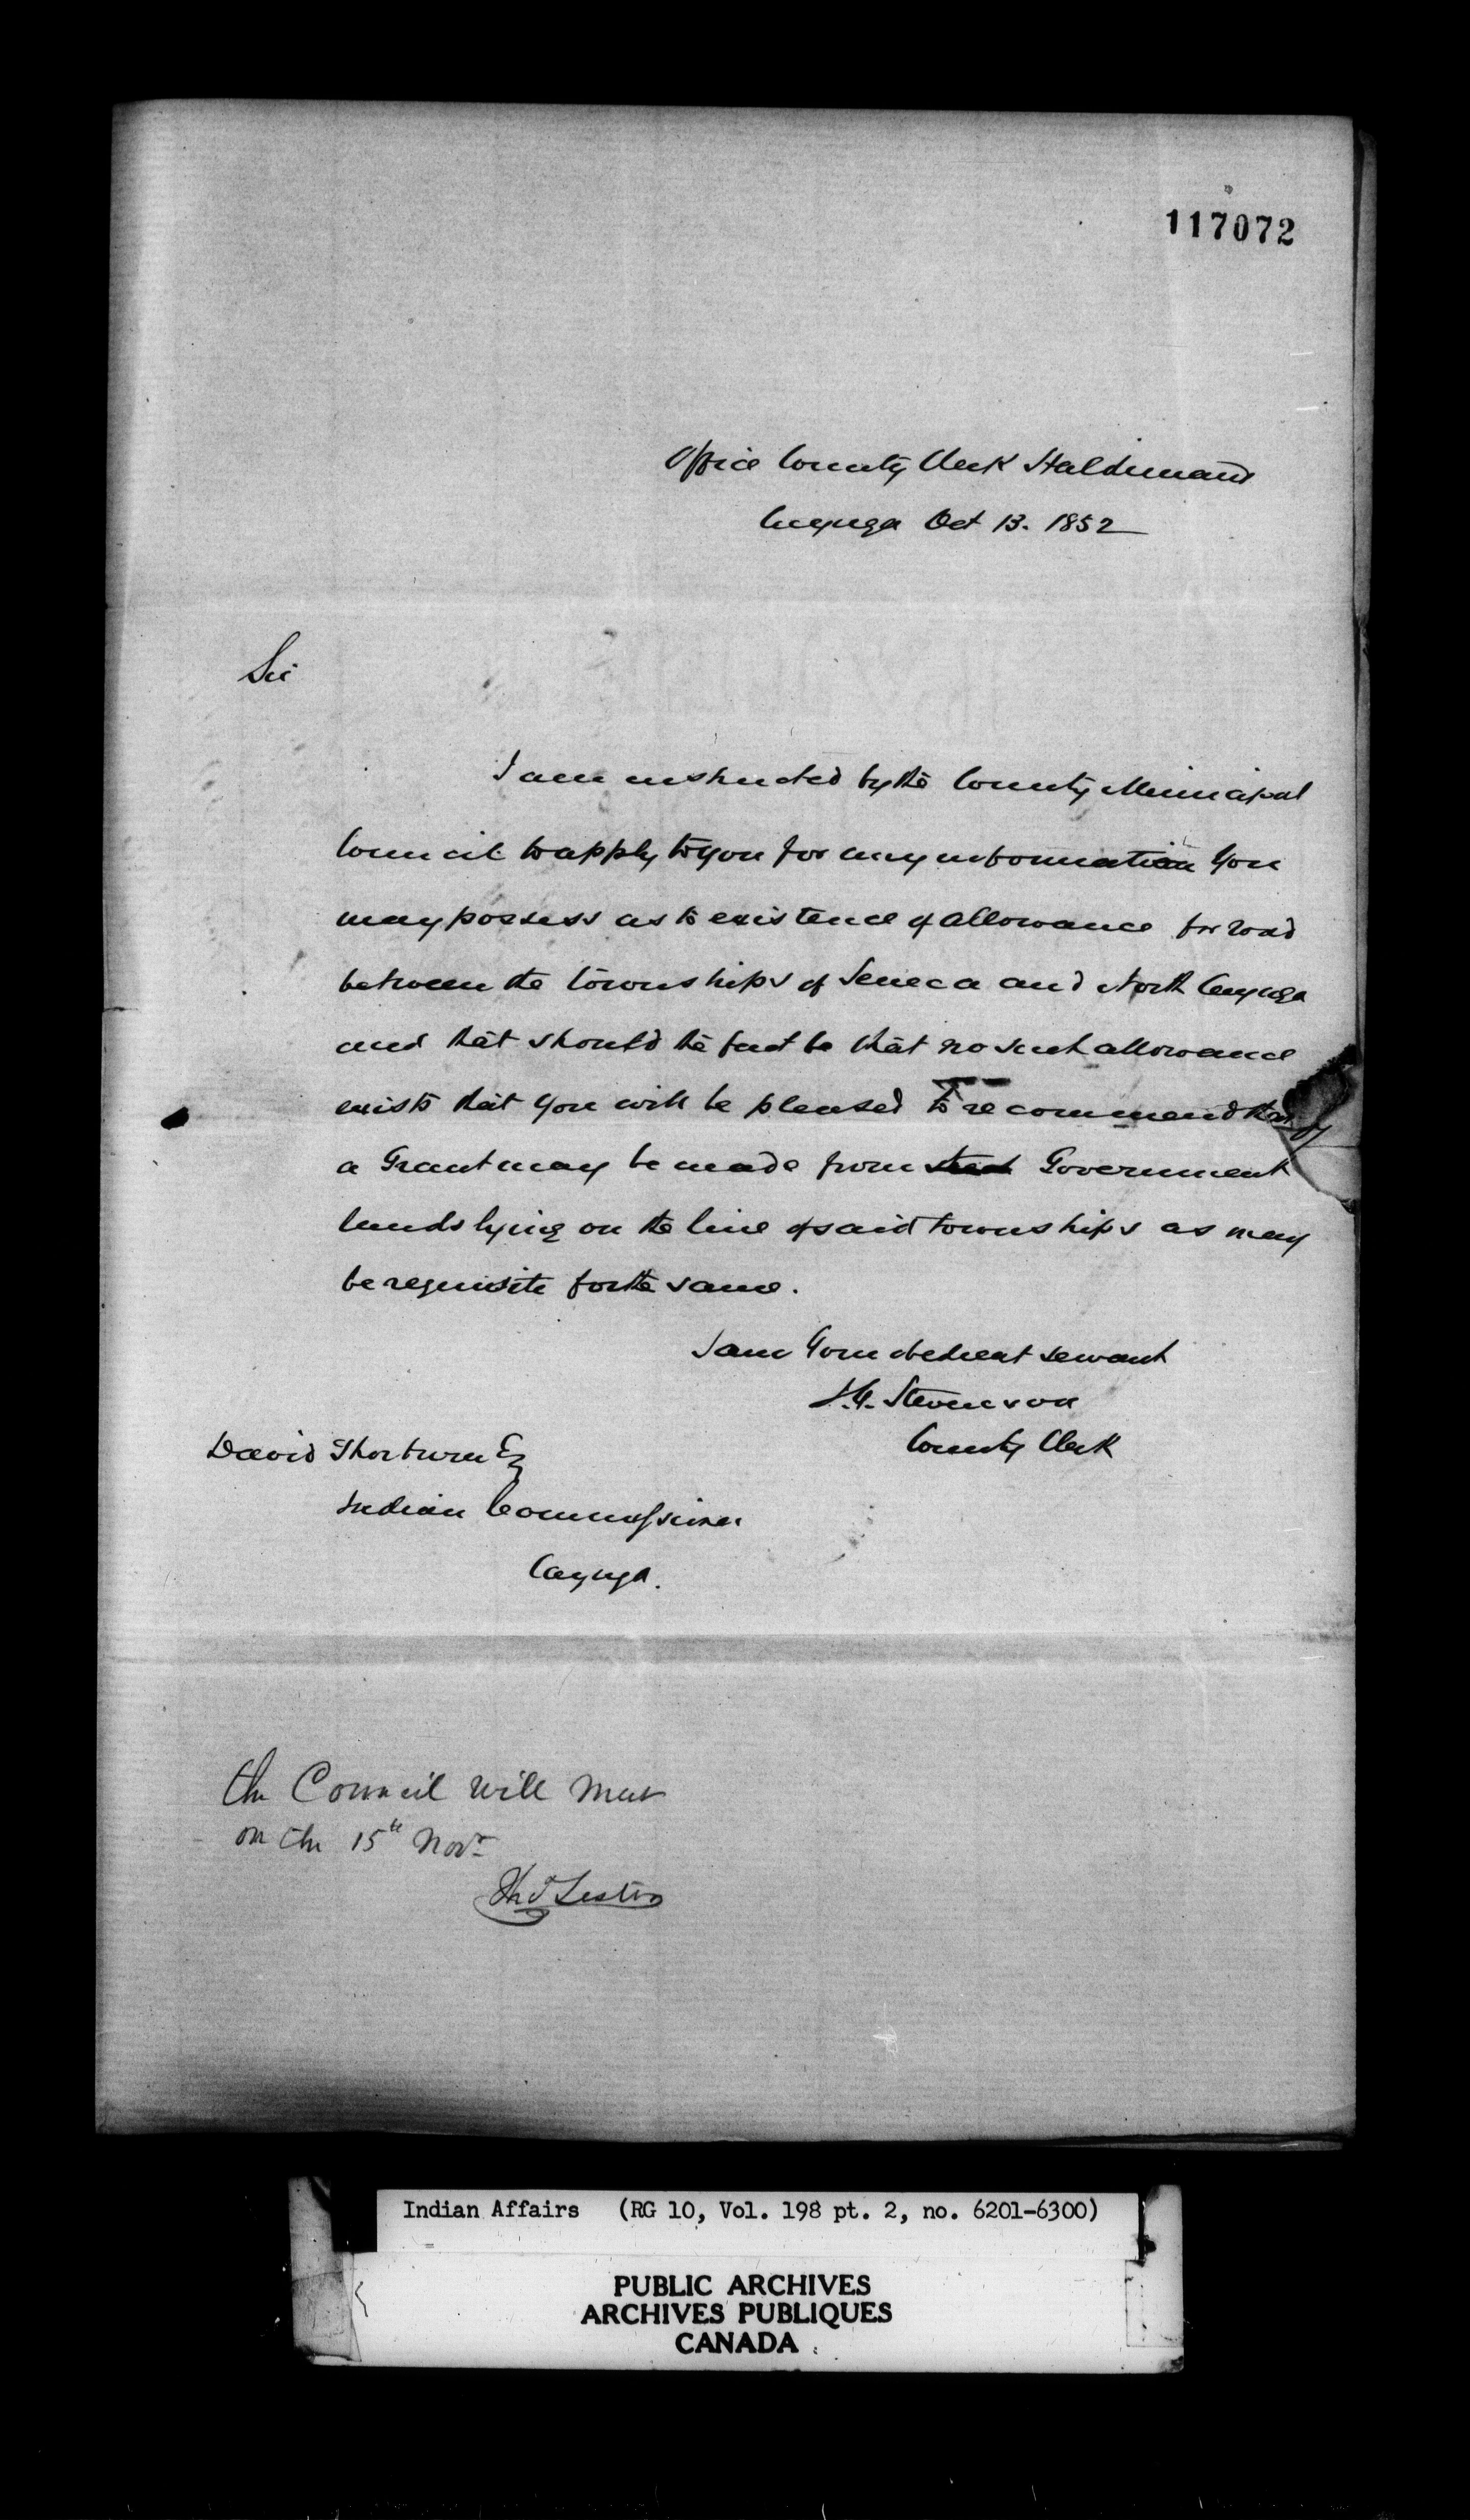 117072
Office County Clerk Haldimand
Cayuga Oct 13. 1852
Sir
I am instructed by the County Municipal
Council to apply to you for any information you
may possess as to existence of allowance for road
between the townships of Seneca and North Cayuga
and that should the fact be that no such allowance
exists that you will be pleased to recommend that
a Grant may be made from Government
lands lying on the line of said townships as may
be requisite for the same.
I am Your obedient servant
Stevenson
County Clerk
David Thorburn Esq
Indian Commissioner
Cayuga.
the Council will meet
on the 15th Novr
Lester
Indian Affairs (RG 10, Vol. 198 pt. 2, no. 6201-6300)
PUBLIC ARCHIVES
ARCHIVES PUBLIQUES
CANADA